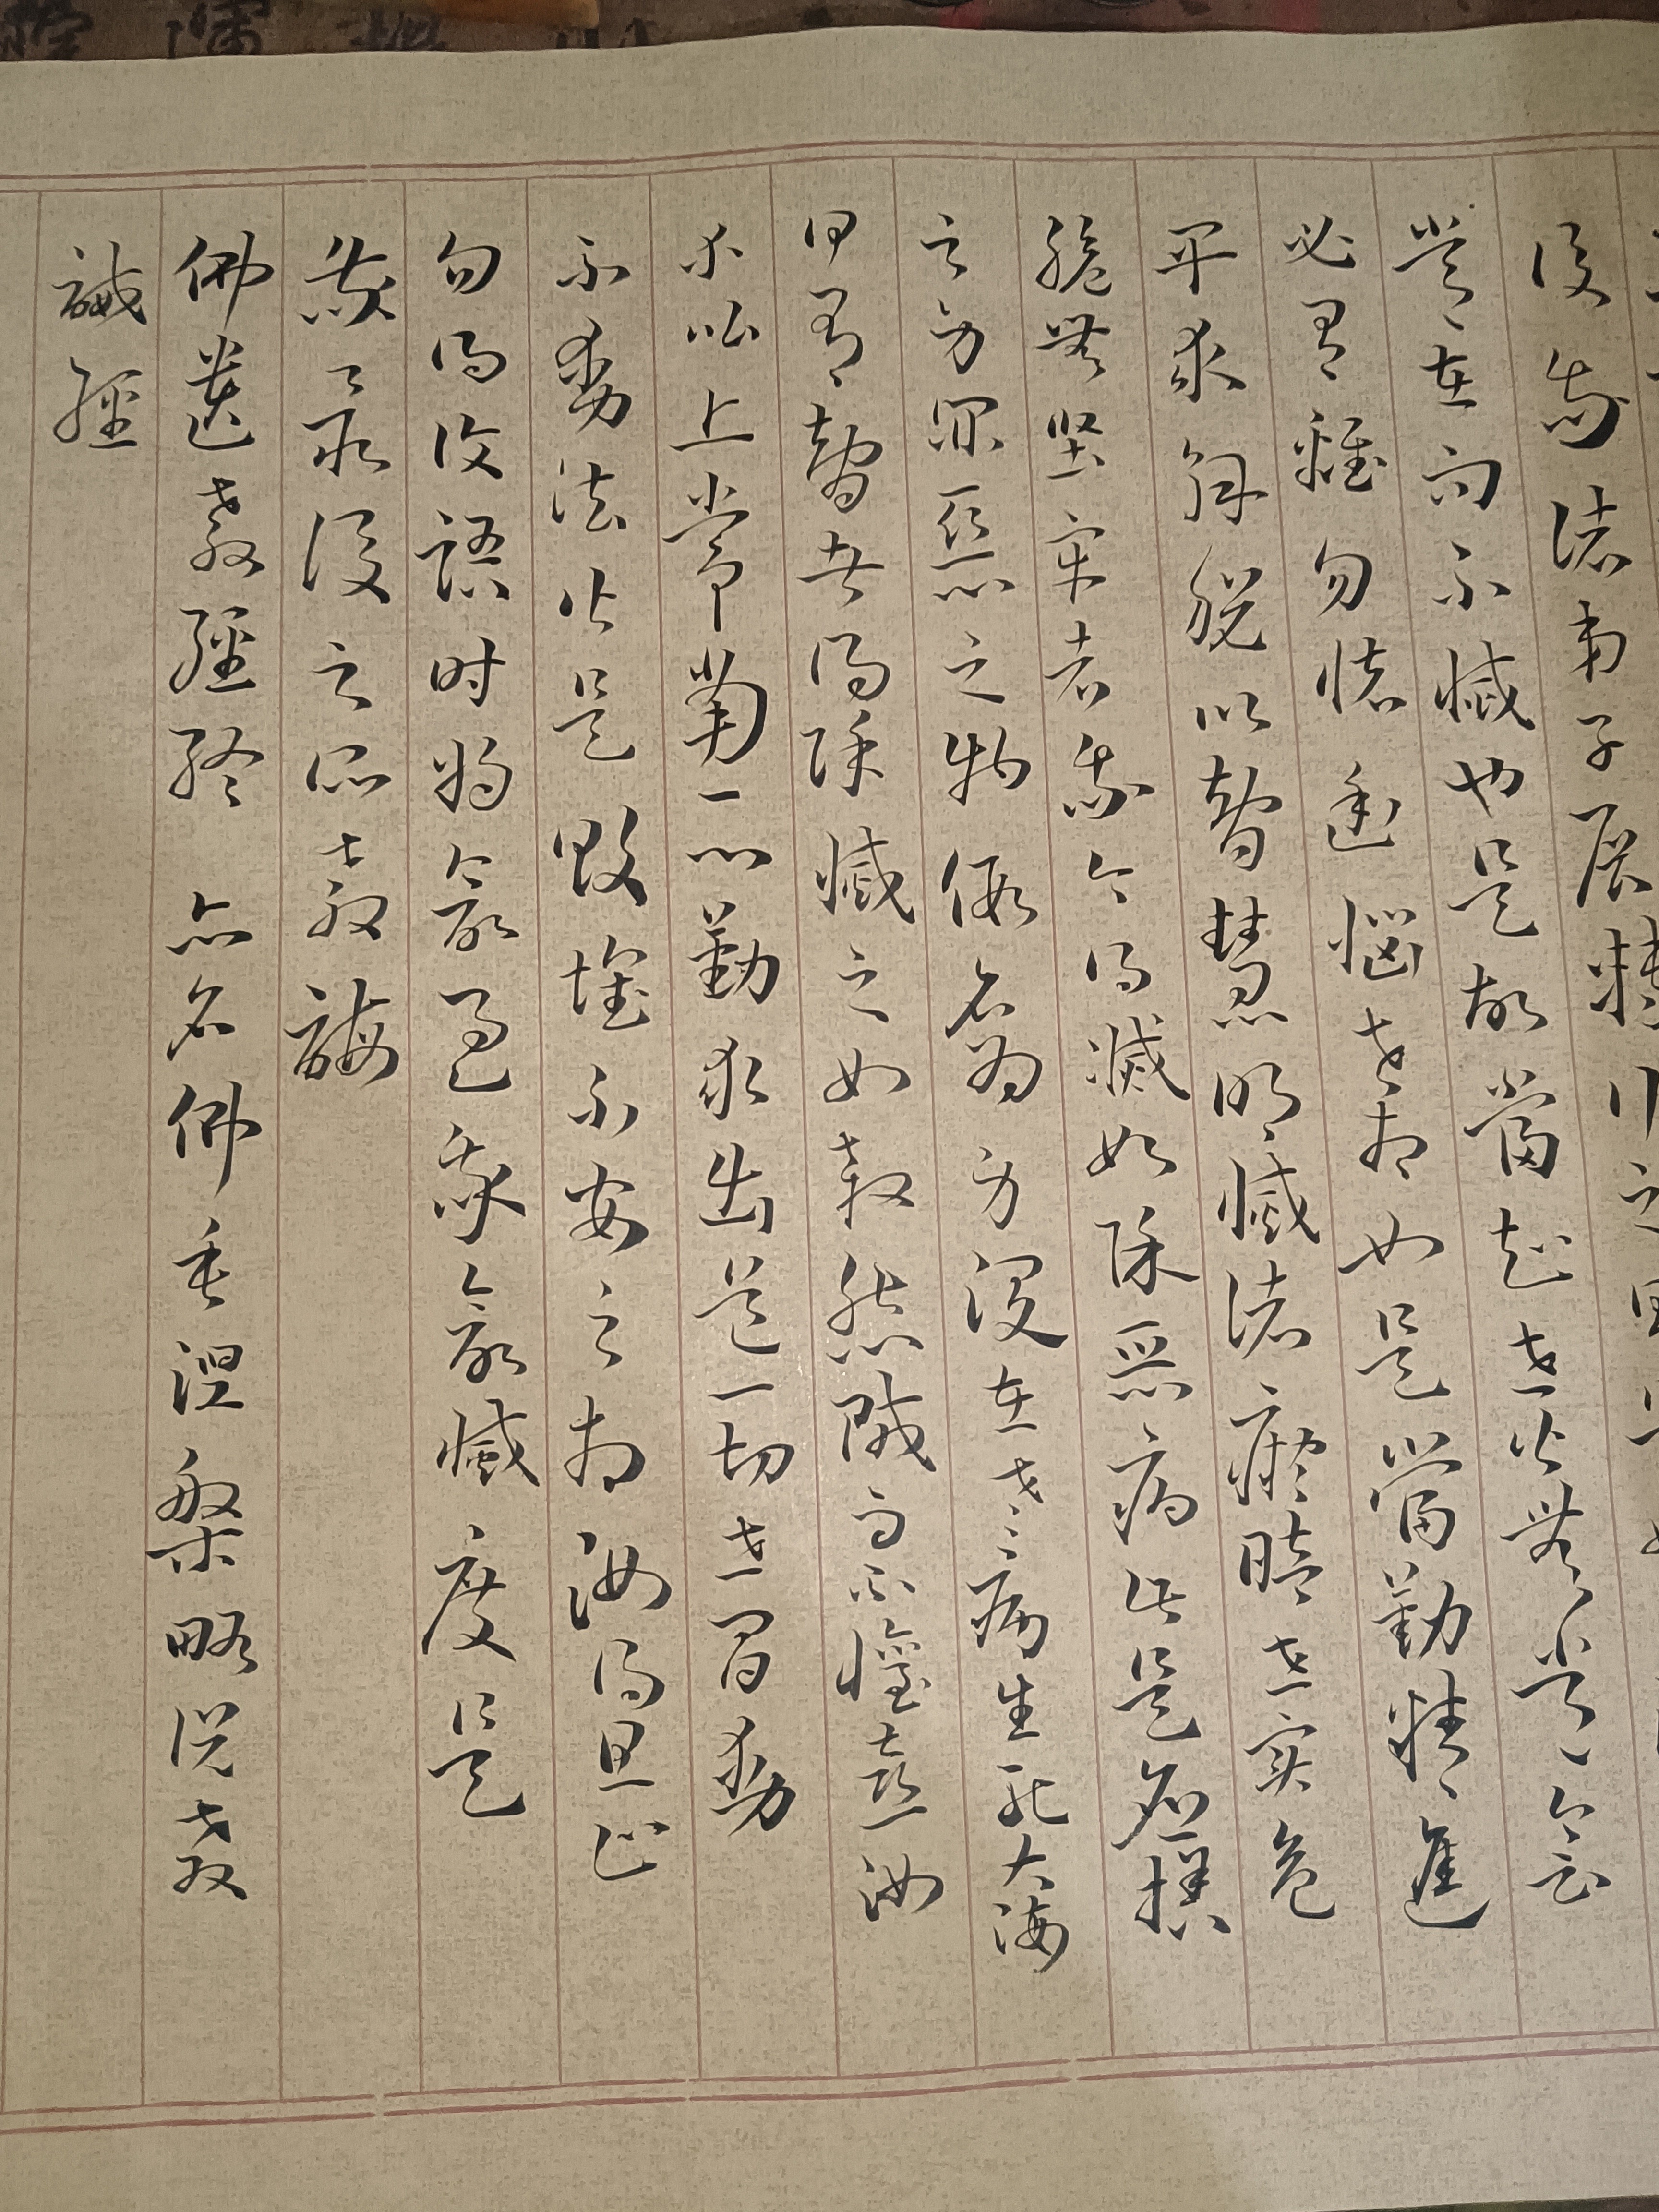 後我諸弟子展轉行之
常在而不滅也是故當知世皆無常會
必有離勿懷憂惱世相如是當勤精進
早求解脫以智慧明滅諸癡暗世實危
脆無堅牢者我今得滅如除惡病此是應捨
之身罪惡之物假名為身沒在老病生死大海
何有智者得除滅之如殺怨賊而不歡喜汝
等比丘常當一心勤求出道一切世間動
不動法皆是敗壞不安之相汝得且止
勿得復語時將欲過我欲滅度是
我最後之所教誨
佛遺教經終 亦名佛垂涅槃略說教
誡經